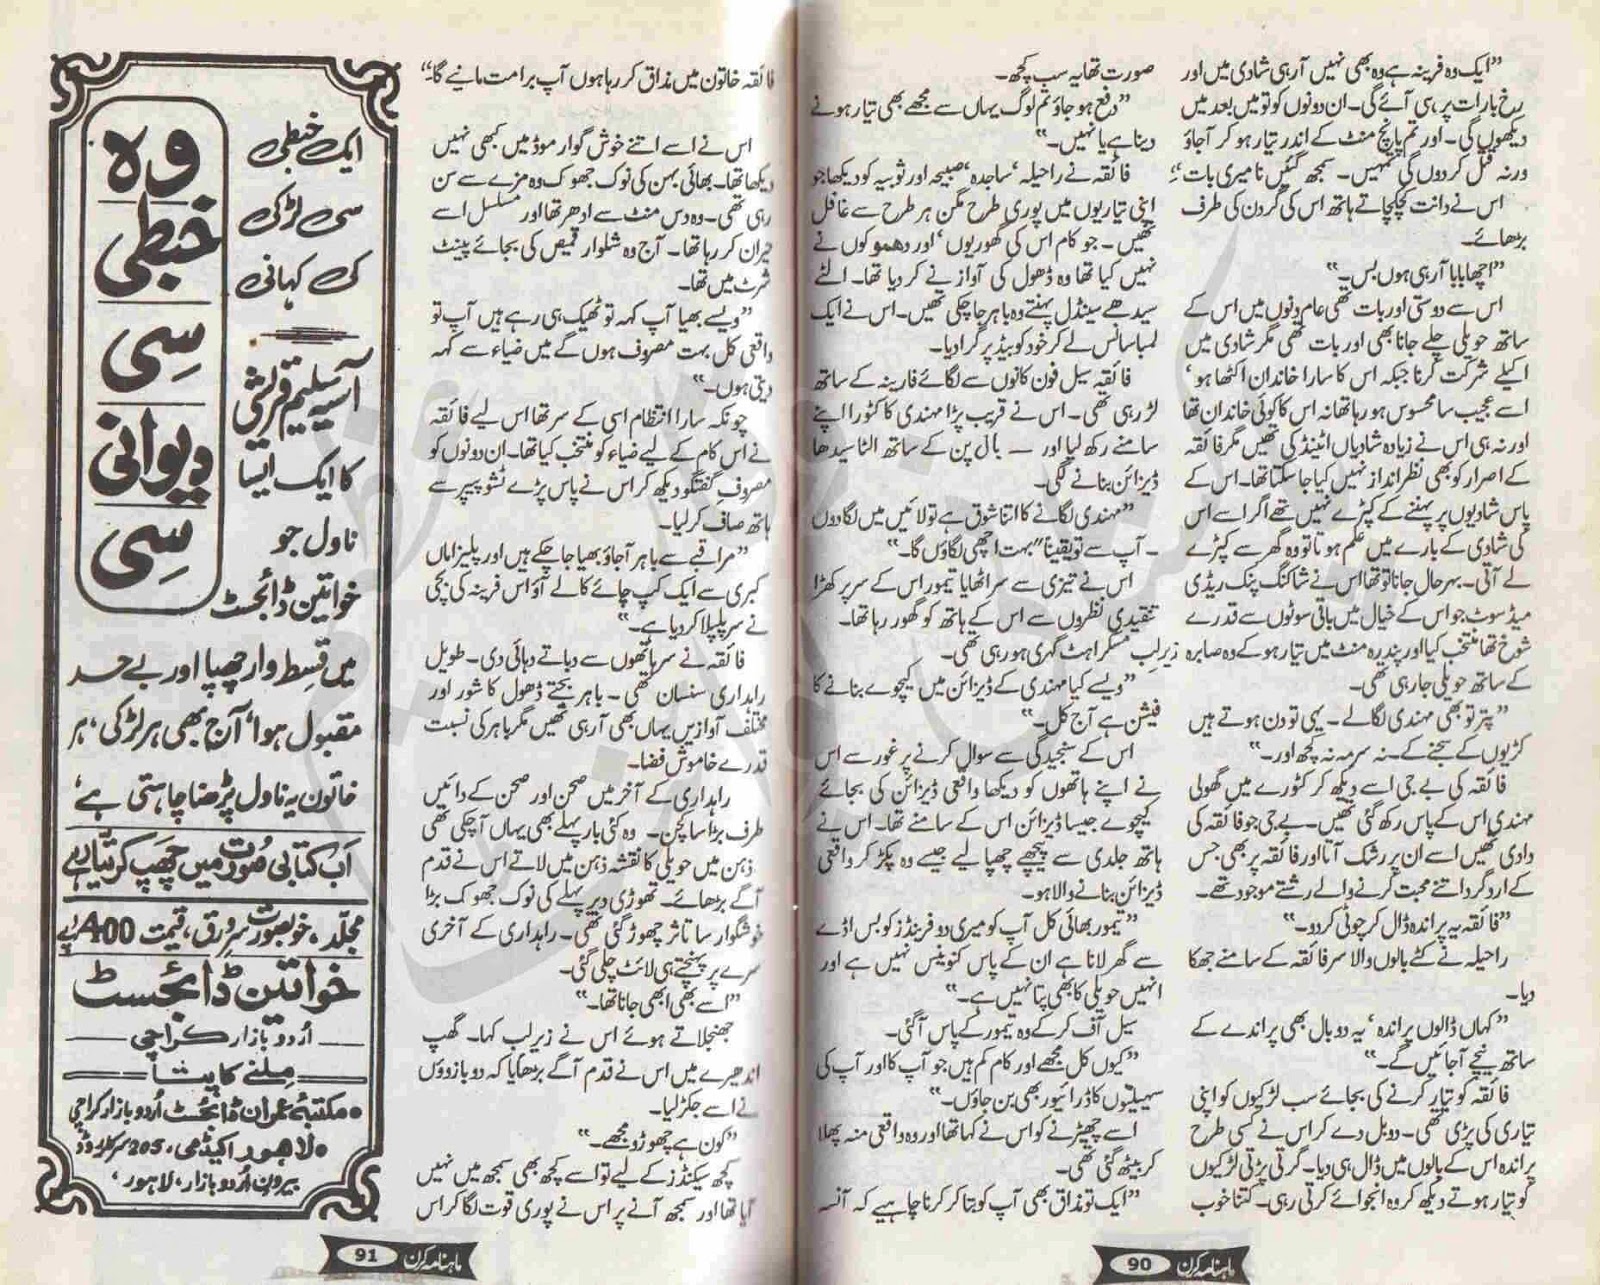 ”ایک وہ فرینہ ہے وہ بھی نہیں آ رہی شادی میں اور
رخ بارات پر ہی آئے گی۔ ان دونوں کو تو میں بعد میں
دیکھوں گی۔ اور تم پانچ منٹ کے اندر تیار ہو کر آ جاؤ
ورنہ قتل کر دوں گی تمہیں۔ سمجھ گئیں نا میری بات“۔
اس نے دانت کچکچاتے ہاتھ اس کی گردن کی طرف
بڑھائے۔
”اچھا بابا آ رہی ہوں بس۔“
اس سے دوستی اور بات تھی عام دنوں میں اس کے
ساتھ حویلی چلے جانا بھی اور بات تھی مگر شادی میں
اکیلے شرکت کرنا جبکہ اس کا سارا خاندان اکٹھا ہو‘
اسے عجیب سا محسوس ہو رہا تھا نہ اس کا کوئی خاندان تھا
اور نہ ہی اس نے زیادہ شادیاں اٹینڈ کی تھیں مگر فائقہ
کے اصرار کو بھی نظر انداز نہیں کیا جا سکتا تھا۔ اس کے
پاس شادیوں پر پہننے کے کپڑے نہیں تھے اگر اسے اس
کی شادی کے بارے میں علم ہوتا تو وہ گھر سے کپڑے
لے آتی۔ بہرحال جانا تو تھا اس نے شاکنگ پنک ریڈی
میڈ سوٹ جو اس کے خیال میں باقی سوٹوں سے قدرے
شوخ تھا منتخب کیا اور پندرہ منٹ میں تیار ہو کے وہ صابرہ
کے ساتھ حویلی جا رہی تھی۔
”پتر تو بھی مہندی لگا لے۔ یہی تو دن ہوتے ہیں
کڑیوں کے سجنے کے۔ نہ سرمہ نہ کچھ اور۔“
فائقہ کی بے جی اسے دیکھ کر کٹورے میں گھولی
مہندی اس کے پاس رکھ گئی تھیں۔ بے جی جو فائقہ کی
دادی تھیں اسے ان پر رشک آتا اور فائقہ پر بھی جس
کے ارد گرد اتنے محبت کرنے والے رشتے موجود تھے۔
”فائقہ یہ پراندہ ڈال کر چوٹی کر دو۔“
راحیلہ نے کٹے بالوں والا سر فائقہ کے سامنے جھکا
دیا۔
”کہاں ڈالوں پراندہ‘ یہ دو بال بھی پراندے کے
ساتھ نیچے آ جائیں گے۔“
فائقہ کو تیار کرنے کی بجائے سب لڑکیوں کو اپنی
تیاری کی پڑی تھی۔ دو بل دے کر اس نے کسی طرح
پراندہ اس کے بالوں میں ڈال ہی دیا۔ گرتی پڑتی لڑکیوں
کو تیار ہوتے دیکھ کر وہ انجوائے کرتی رہی۔ کتنا خوب
صورت تھا یہ سب کچھ۔
”دفع ہو جاؤ تم لوگ یہاں سے مجھے بھی تیار ہونے
دینا ہے یا نہیں۔“
فائقہ نے راحیلہ‘ ساجدہ‘ صبیحہ اور ثوبیہ کو دیکھا جو
اپنی تیاریوں میں پوری طرح مگن ہر طرح سے غافل
تھیں۔ جو کام اس کی گھوریوں‘ اور دھموکوں نے
نہیں کیا تھا وہ ڈھول کی آواز نے کر دیا تھا۔ الٹے
سیدھے سینڈل پہنتے وہ باہر جا چکی تھیں۔ اس نے ایک
لمبا سانس لے کر خود کو بیڈ پر گرا دیا۔
فائقہ سیل فون کانوں سے لگائے فارینہ کے ساتھ
لڑ رہی تھی۔ اس نے قریب پڑا مہندی کا کٹورا اپنے
سامنے رکھ لیا اور — بال پن کے ساتھ الٹا سیدھا
ڈیزائن بنانے لگی۔
”مہندی لگانے کا اتنا شوق ہے تو لائیں میں لگا دوں
۔ آپ سے تو یقیناً“ بہت اچھی لگاؤں گا۔“
اس نے تیزی سے سر اٹھایا تیمور اس کے سر پر کھڑا
تنقیدی نظروں سے اس کے ہاتھ کو گھور رہا تھا۔
زیر لب مسکراہٹ گہری ہو رہی تھی۔
”ویسے کیا مہندی کے ڈیزائن میں کیچوے بنانے کا
فیشن ہے آج کل۔“
اس کے سنجیدگی سے سوال کرنے پر غور سے اس
نے اپنے ہاتھوں کو دیکھا واقعی ڈیزائن کی بجائے
کیچوے جیسا ڈیزائن اس کے سامنے تھا۔ اس نے
ہاتھ جلدی سے پیچھے چھپا لیے جیسے وہ پکڑ کر واقعی
ڈیزائن بنانے والا ہو۔
”تیمور بھائی کل آپ کو میری دو فرینڈز کو بس اڈے
سے گھر لانا ہے ان کے پاس کنوینس نہیں ہے اور
انہیں حویلی کا بھی پتا نہیں ہے۔“
سیل آف کر کے وہ تیمور کے پاس آ گئی۔
”کیوں کل مجھے اور کام کم ہیں جو آپ کا اور آپ کی
سہیلیوں کا ڈرائیور بھی بن جاؤں۔“
اسے چھیڑنے کو اس نے کہا تھا اور وہ واقعی منہ پھلا
کر بیٹھ گئی تھی۔
”ایک تو مذاق بھی آپ کو بتا کر کرنا چاہیے کہ آنسہ
ماہنامہ کرن 90
فائقہ خاتون میں مذاق کر رہا ہوں آپ برا مت مانیے گا۔“
اس نے اسے اتنے خوش گوار موڈ میں کبھی نہیں
دیکھا تھا۔ بھائی بہن کی نوک جھوک وہ مزے سے سن
رہی تھی۔ وہ دس منٹ سے ادھر تھا اور مسلسل اسے
حیران کر رہا تھا۔ آج وہ شلوار قمیص کی بجائے پینٹ
شرٹ میں تھا۔
”ویسے بھیا آپ کہہ تو ٹھیک ہی رہے ہیں آپ تو
واقعی کل بہت مصروف ہوں گے میں ضیاء سے کہہ
دیتی ہوں۔“
چونکہ سارا انتظام اسی کے سر تھا اس لیے فائقہ
نے اس کام کے لیے ضیاء کو منتخب کیا تھا۔ ان دونوں کو
مصروف گفتگو دیکھ کر اس نے پاس پڑے ٹشو پیپر سے
ہاتھ صاف کر لیا۔
”مراقبے سے باہر آ جاؤ بھیا جا چکے ہیں اور پلیز اماں
کبری سے ایک کپ چائے کا لے آؤ اس فرینہ کی بچی
نے سر پلپلا کر دیا ہے۔“
فائقہ نے سر ہاتھوں سے دباتے دہائی دی۔ طویل
راہداری سنسان تھی۔ باہر بجتے ڈھول کا شور اور
مختلف آوازیں یہاں بھی آ رہی تھیں مگر باہر کی نسبت
قدرے خاموش فضا۔
راہداری کے آخر میں صحن اور صحن کے دائیں
طرف بڑا سا کچن۔ وہ کئی بار پہلے بھی یہاں آ چکی تھی
ذہن میں حویلی کا نقشہ ذہن میں لاتے اس نے قدم
آگے بڑھائے۔ تھوڑی دیر پہلے کی نوک جھوک بڑا
خوشگوار سا تاثر چھوڑ گئی تھی۔ راہداری کے آخری
سرے پر پہنچتے ہی لائٹ چلی گئی۔
”اسے بھی ابھی جانا تھا۔“
جھنجلاتے ہوئے اس نے زیر لب کہا۔ گھپ
اندھیرے میں اس نے قدم آگے بڑھایا کہ دو بازوؤں
نے اسے جکڑ لیا۔
”کون ہے چھوڑو مجھے۔“
کچھ سیکنڈز کے لیے تو اسے کچھ بھی سمجھ میں نہیں
آیا تھا اور سمجھ آنے پر اس نے پوری قوت لگا کر اس
ماہنامہ کرن 91
وہ
خبطی
سی
دیوانی
سی
ایک خبطی
سی لڑکی
کی کہانی
آسیہ سلیم قریشی
کا ایک ایسا
ناول جو
خواتین ڈائجسٹ
میں قسط وار چھپا اور بے حد
مقبول ہوا‘ آج بھی ہر لڑکی‘ ہر
خاتون یہ ناول پڑھنا چاہتی ہے‘
اب کتابی صورت میں چھپ کر تیار ہے
مجلد، خوبصورت سرورق، قیمت 400 روپے
خواتین ڈائجسٹ
اردو بازار کراچی
ملنے کا پتا
• مکتبۂ عمران ڈائجسٹ اردو بازار کراچی
• لاہور اکیڈمی، 205 سرکلر روڈ
بیرون اردو بازار، لاہور،